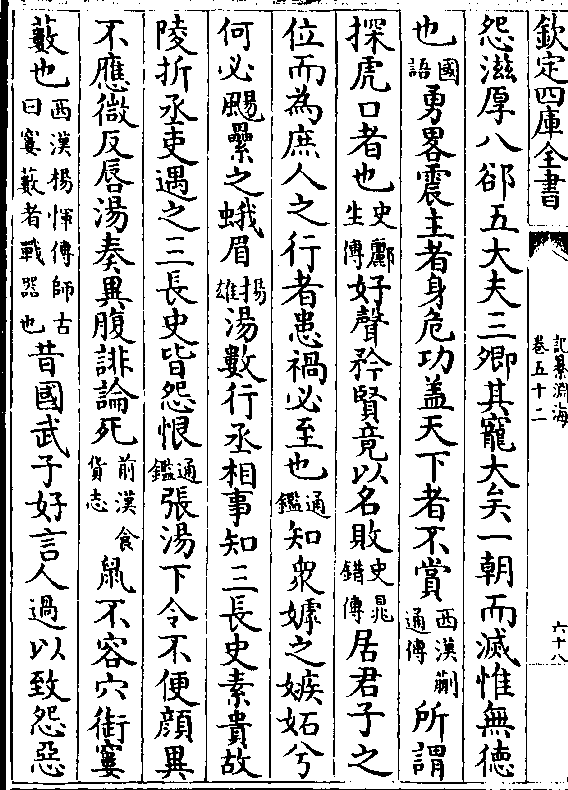 欽定四庫全書
記纂淵海
卷五十二
六十八
怨滋厚八郤五大夫三卿其寵大矣一朝而滅惟無徳
也國語勇畧震主者身危功盖天下者不賞西漢蒯通傳所謂
探虎口者也史酈生傳好聲矜賢竟以名敗史晁錯傳居君子之
位而為庶人之行者患禍必至也通鑑知衆嫭之嫉妬兮
何必颺纍之蛾眉揚雄湯數行丞相事知三長史素貴故
陵折丞吏遇之三長史皆怨恨通鑑張湯下令不便顔異
不應微反唇湯奏異腹誹論死前漢食貨志鼠不容穴銜窶
藪也西漢楊惲傳師古曰窶藪者戰器也昔國武子好言人過以致怨惡